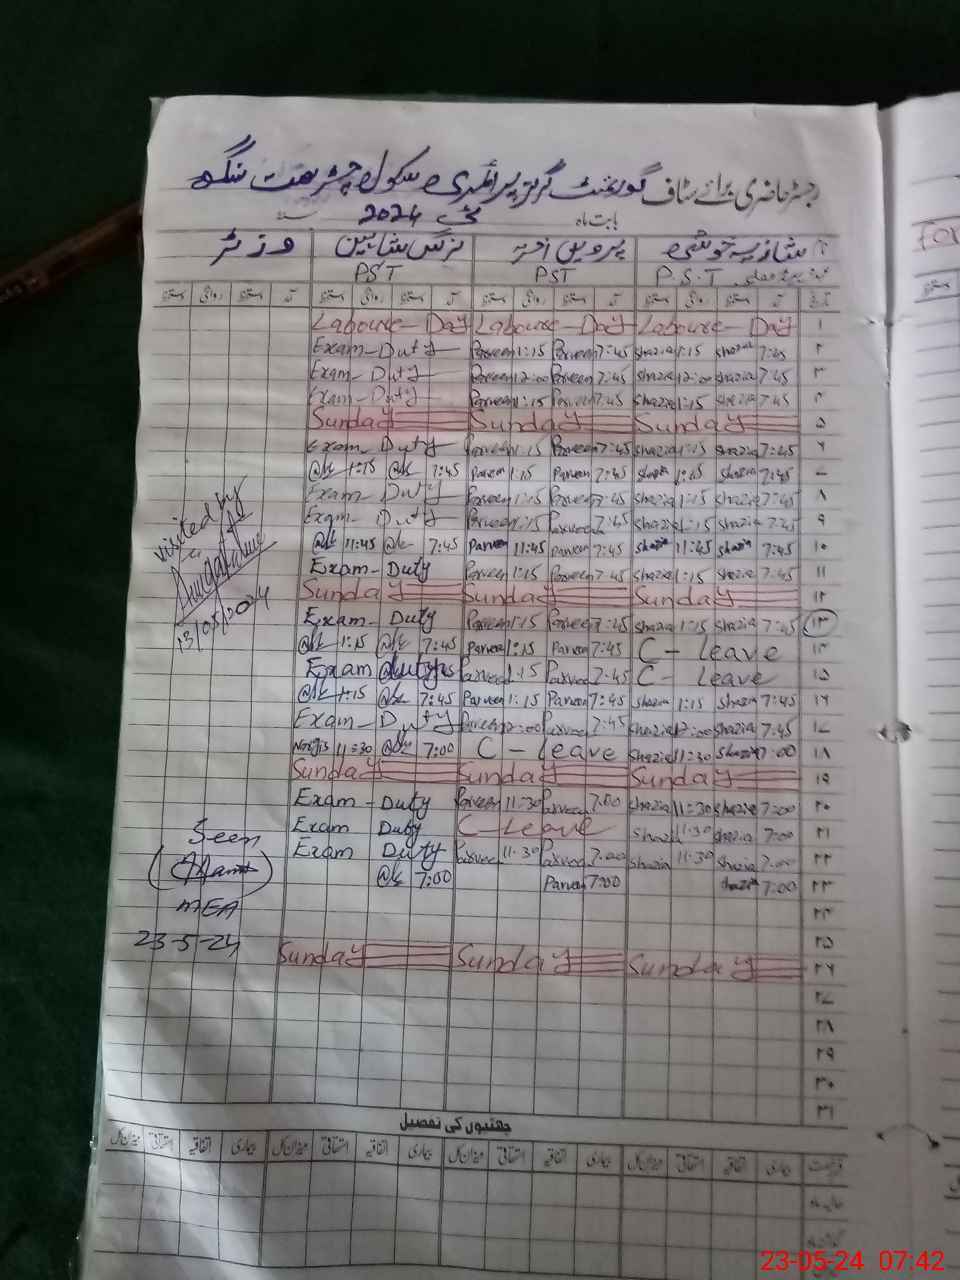 رجسٹر حاضری برائے سٹاف گورنمنٹ گرلز پرائمری سکول
بابت ماہ مئی 2024
شازیہ پروین نرگس شاہین وزٹر
P.S.T PST PST
Labour-Day Labour-Day Labour-Day ۱
Exam-Duty Parveen 1:15 Parveen 7:45 Shazia 1:15 Shazia 7:45 ۲
Exam-Duty Parveen 12:00 Parveen 7:45 Shazia 12:00 Shazia 7:45 ۳
Exam-Duty Parveen 1:15 Parveen 7:45 Shazia 1:15 Shazia 7:45 ۴
Sunday Sunday Sunday ۵
Exam Duty Parveen 1:15 Parveen 7:45 Shazia 1:15 Shazia 7:45 ۶
1:15 7:45 Parveen 1:15 Parveen 7:45 Shazia 1:15 Shazia 7:45 ۷
Exam-Duty Parveen 1:15 Parveen 7:45 Shazia 1:15 Shazia 7:45 ۸
Exam-Duty Parveen 1:15 Parveen 7:45 Shazia 1:15 Shazia 7:45 ۹
11:45 7:45 Parveen 11:45 Parveen 7:45 Shazia 11:45 Shazia 7:45 ۱۰
Exam-Duty Parveen 1:15 Parveen 7:45 Shazia 1:15 Shazia 7:45 ۱۱
Sunday Sunday Sunday ۱۲
Exam-Duty Parveen 1:15 Parveen 7:45 Shazia 1:15 Shazia 7:45 ۱۳
1:15 7:45 Parveen 1:15 Parveen 7:45 C-leave ۱۴
Exam Duty Parveen 1:15 Parveen 7:45 C-leave ۱۵
1:15 7:45 Parveen 1:15 Parveen 7:45 Shazia 1:15 Shazia 7:45 ۱۶
Exam-Duty Parveen 12:00 Parveen 7:45 Shazia 12:00 Shazia 7:45 ۱۷
11:30 7:00 C-leave Shazia 11:30 Shazia 7:00 ۱۸
Sunday Sunday Sunday ۱۹
Exam-Duty Parveen 11:30 Parveen 7:00 Shazia 11:30 Shazia 7:00 ۲۰
Exam Duty C-Leave Shazia 11:30 Shazia 7:00 ۲۱
Exam Duty Parveen 11:30 Parveen 7:00 Shazia 11:30 Shazia 7:00 ۲۲
7:00 Parveen 7:00 Shazia 7:00 ۲۳
۲۴
۲۵
Sunday Sunday Sunday ۲۶
۲۷
۲۸
۲۹
۳۰
۳۱
visited by
13/05/2024
Seen
MEA
23-5-24
چھٹیوں کی تفصیل
میزان کل استحقاقی اتفاقیہ بیماری میزان کل استحقاقی اتفاقیہ بیماری میزان کل استحقاقی اتفاقیہ بیماری میزان کل استحقاقی اتفاقیہ بیماری
For
23-05-24 07:42